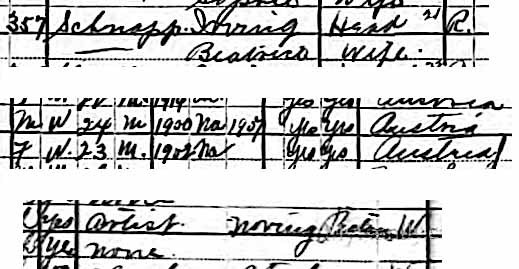 357 Schnapp Irving Head 21 R.
Beatrice Wife
M W 24 M 1900 Na 1907 yes yes Austria
F W. 23 M. 1902 Na yes yes Austria
yes Artist Moving Picture W.
yes none